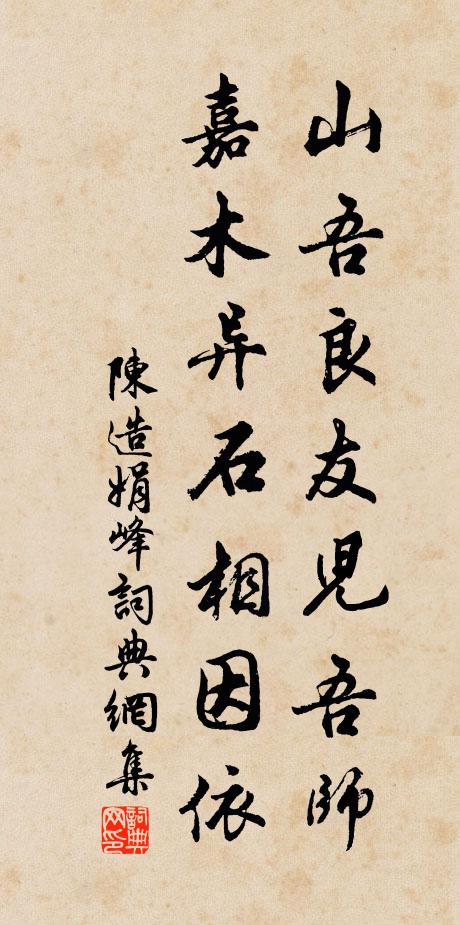 山吾良友児吾師
嘉木异石相因依
陳造娟峰詞典網集
詞典网印